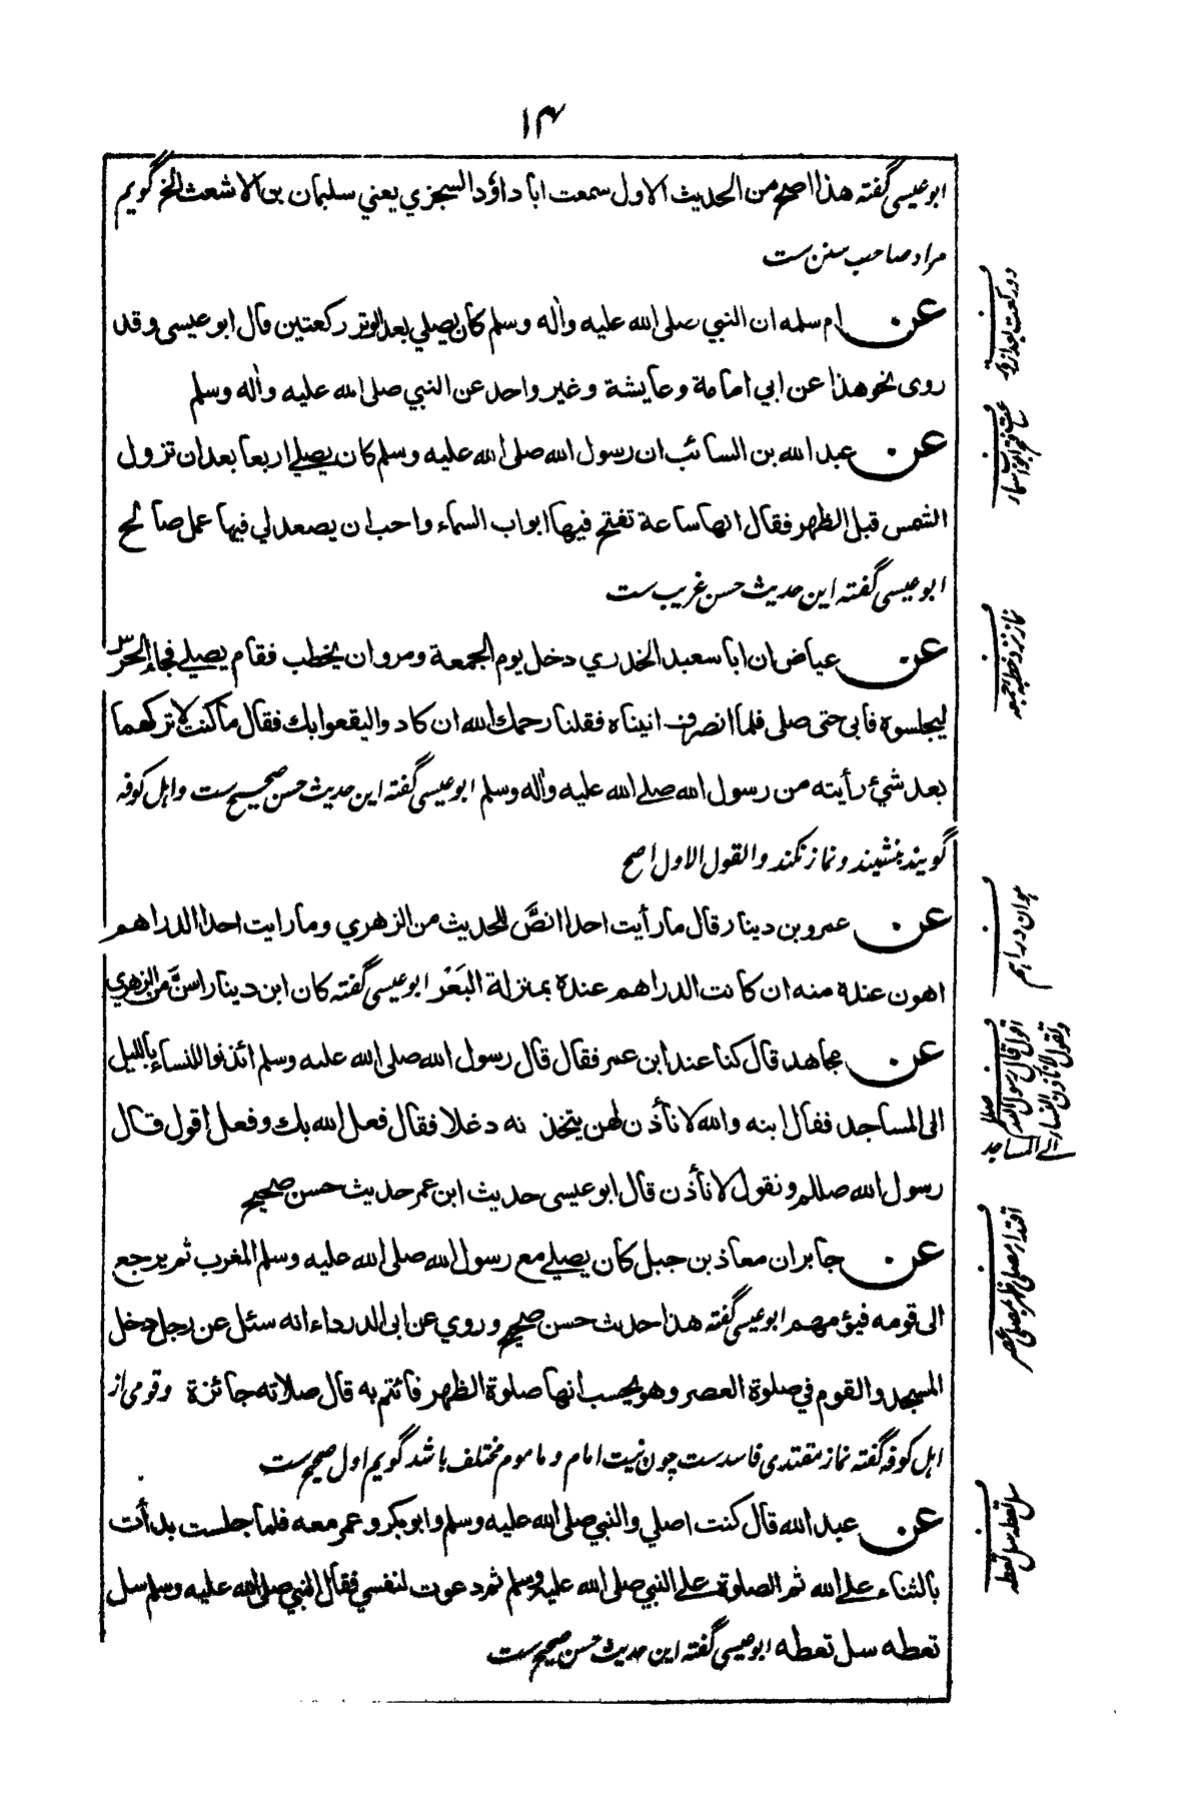 ۱۴
ابو عیسی گفته هذا اصح من الحدیث الاول سمعت ابا داؤد السجزي یعني سلیمان بن الاشعث الخ گویم
مراد صاحب سنن ست
عن ام سلمه ان النبي صلی الله علیه وأله وسلم کان یصلي بعد الوتر رکعتین قال ابو عیسی وقد
روی نحو هذا عن ابي امامة وعایشة وغیر واحد عن النبي صلی الله علیه وأله وسلم
عن عبد الله بن السائب ان رسول الله صلی الله علیه وسلم کان یصلي اربعا بعد ان تزول
الشمس قبل الظهر فقال انها ساعة تفتح فیها ابواب السماء واحب ان یصعد لي فیها عمل صالح
ابو عیسی گفته این حدیث حسن غریب ست
عن عیاض ان ابا سعید الخدري دخل یوم الجمعة ومروان یخطب فقام یصلي فجاء الحرس
لیجلسوه فابی حتی صلی فلما انصرف اتیناه فقلنا رحمك الله ان کادوا لیقعوا بك فقال ما کنت لاترکهما
بعد شيء رأیته من رسول الله صلی الله علیه وأله وسلم ابو عیسی گفته این حدیث حسن صحیح ست واهل کوفه
گویند بنشیند و نماز نکند والقول الاول اصح
عن عمرو بن دینار قال ما رأیت احدا انصَّ للحدیث من الزهري وما رایت احدا الدراهم
اهون عنده منه ان کانت الدراهم عنده بمنزلة البَعْر ابو عیسی گفته کان ابن دینار اسنَّ من الزهري
عن مجاهد قال کنا عند ابن عمر فقال قال رسول الله صلی الله علیه وسلم ائذنوا للنساء باللیل
الی المساجد فقال ابنه والله لا نأذن لهن یتخذنه دغلا فقال فعل الله بك وفعل اقول قال
رسول الله صللم ونقول لا نأذن قال ابو عیسی حدیث ابن عمر حدیث حسن صحیح
عن جابر ان معاذ بن جبل کان یصلي مع رسول الله صلی الله علیه وسلم المغرب ثم یرجع
الی قومه فیؤمهم ابو عیسی گفته هذا حدیث حسن صحیح وروي عن ابی الدرداء انه سئل عن رجل دخل
المسجد والقوم في صلوة العصر وهو یحسب انها صلوة الظهر فائتم به قال صلاته جائزة وقومی از
اهل کوفه گفته نماز مقتدی فاسد ست چون نیت امام و ماموم مختلف باشد گویم اول صحیح ست
عن عبد الله قال کنت اصلي والنبي صلی الله علیه وسلم وابو بکر وعمر معه فلما جلست بدأت
بالثناء علی الله ثم الصلوة علی النبي صلی الله علیه وسلم ثم دعوت لنفسي فقال النبي صلی الله علیه وسلم سل
تعطه سل تعطه ابو عیسی گفته این حدیث حسن صحیح ست
دو رکعت بعد از وتر
نماز نزد خطبه جمعه
هوان دراهم
اقول قال رسول الله صللم
ونقول لا نأذن للنساء
الی المساجد
اقتدا مصلی ظهر بمصلی عصر
سل تعطه سل تعطه